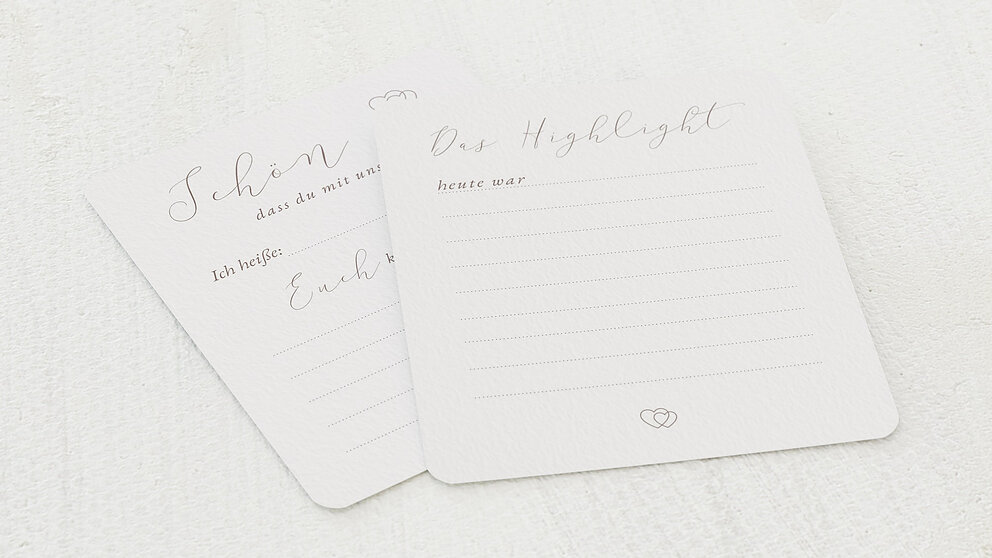 Schön
dass du mit uns
Ich heiße:
Euch k
Das Highlight
heute war